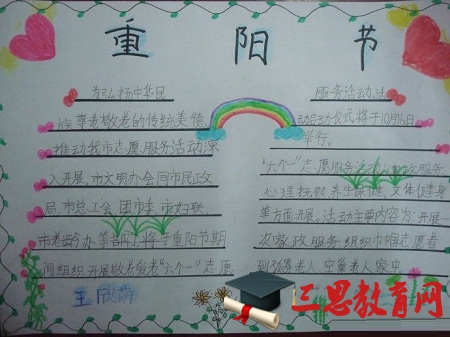 重阳节
为弘扬中华民
族尊老敬老的传统美德
推动我市志愿服务活动深
入开展,市文明办会同市民政
局,市总工会,团市委,市妇联,
市老龄办等部门将于重阳节期
间组织开展敬老爱老"六个一"志愿
服务活动,活
动启动仪式将于10月15日
举行。
"六个一"志愿服务活动以家政服务
心理抚慰,养生保健,文体健身
等方面开展,活动主要内容为:开展一
次家政服务,组织巾帼志愿者
到孤寡老人,空巢老人家中
王欣萌
三思教育网